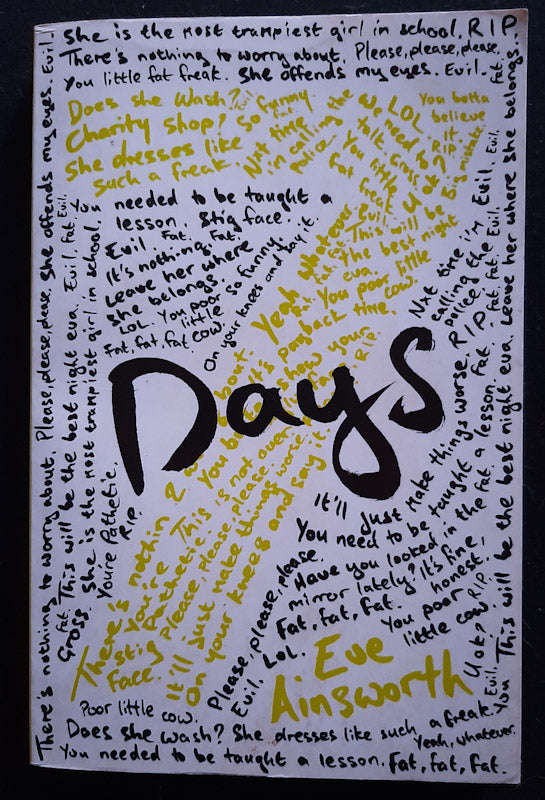 She is the most trampiest girl in school. R.I.P.
There's nothing to worry about. Please, please, please.
You little fat freak. She offends my eyes. Evil.
Does she wash? Evil.
Charity shop? So funny
She dresses like
such a freak.
Nxt time
i'm calling the
police
LOL.
We need to
talk. Gross.
You little
fat freak
You betta
believe
it
R.I.P.
Big mistake.
Yeah whatever.
This will be
the best night
eva.
You poor little
cow.
needed to be taught a
lesson. Stig face.
Evil. Fat. Fat.
It's nothing.
Leave her where
she belongs.
LOL. You poor
little
Fat, fat, fat cow.
So funny.
On your knees and say it.
Days
It's payback time.
There's nothin 2
about
You're
pathetic.
This is not over
Please, please, please.
Stig
Face.
It'll just make things worse.
On your knees and say it.
It'll just make things worse. R.I.P.
You need to be taught a lesson.
Have you looked in the
mirror lately? It's fine,
honest.
Fat, fat, fat.
You poor
little cow.
Please, please, please.
Evil. LOL.
Eve
Ainsworth
Nxt time i'm
calling the
police
Uok?
There's nothing to worry about. Please, please, please. She offends my eyes. Evil.
This will be the best night eva. Evil. Fat. Evil.
Gross. She is the most trampiest girl in school.
You're Pathetic.
R.I.P.
You This will be the best night eva. Leave her where she belongs.
Poor little cow.
Does she wash? She dresses like such a freak.
Yeah, whatever.
You needed to be taught a lesson. Fat, fat, fat.